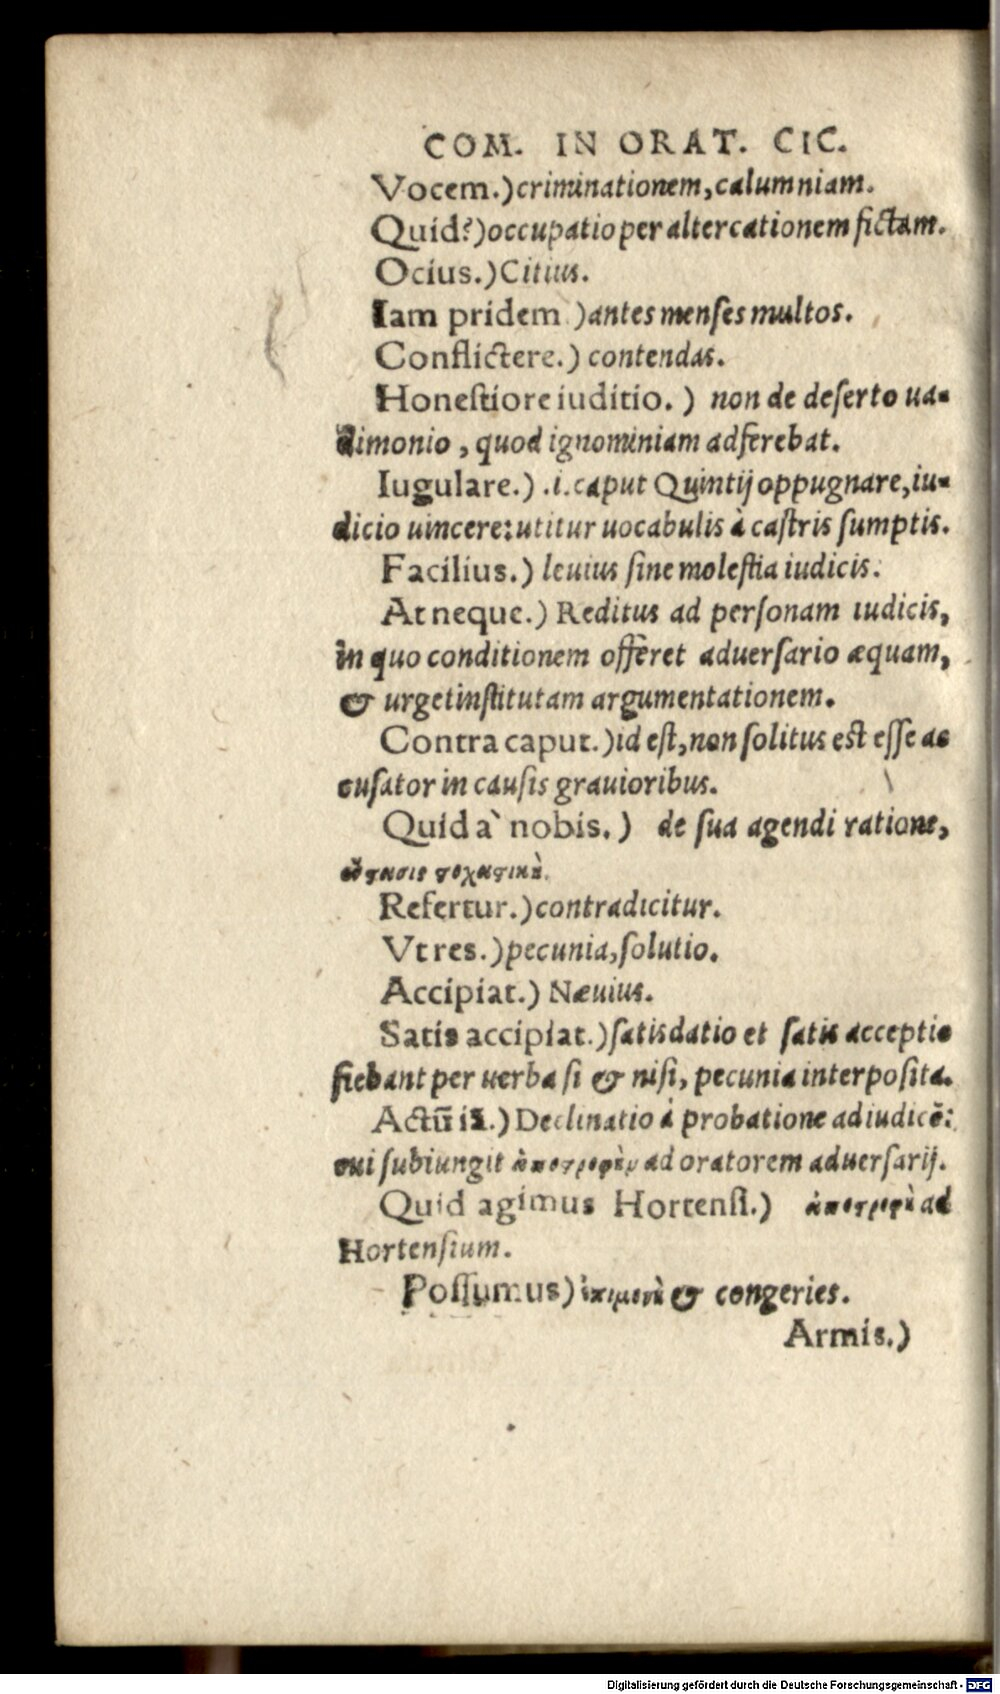 COM. IN ORAT. CIC.
Vocem.) criminationem, calumniam.
Quid?) occupatio per altercationem fictam.
Ocius.) Citius.
Iam pridem.) antes menses multos.
Conflictere.) contendas.
Honestiore iuditio.) non de deserto ua-
dimonio, quod ignominiam adferebat.
Iugulare.) .i. caput Quintij oppugnare, iu-
dicio uincere: utitur uocabulis à castris sumptis.
Facilius.) leuius sine molestia iudicis.
At neque.) Reditus ad personam iudicis,
in quo conditionem offeret aduersario æquam,
& urget institutam argumentationem.
Contra caput.) id est, non solitus est esse ac
cusator in causis grauioribus.
Quid à nobis.) de sua agendi ratione,
ςοχαςικὴ.
Refertur.) contradicitur.
Vt res.) pecunia, solutio.
Accipiat.) Næuius.
Satis accipiat.) satisdatio et satis acceptio
fiebant per uerba si & nisi, pecunia interposita.
Actū is.) Declinatio à probatione ad iudicē:
cui subiungit ἀποςροφὴν ad oratorem aduersarij.
Quid agimus Hortensi.) ἀποςροφὴ ad
Hortensium.
Possumus) ἐπιμονὴ & congeries.
Armis.)
Digitalisierung gefördert durch die Deutsche Forschungsgemeinschaft - DFG